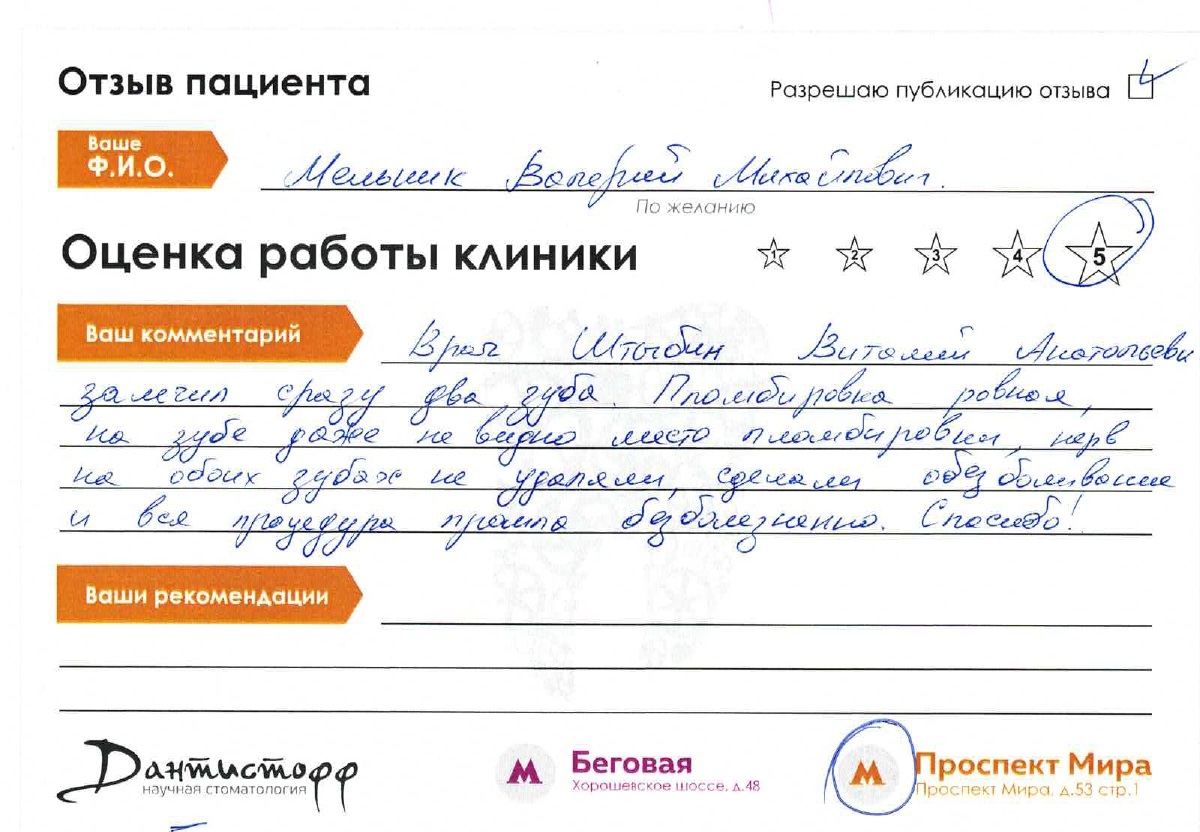 Отзыв пациента
Разрешаю публикацию отзыва
Ваше
Ф.И.О.
Мельник Валерий Михайлович.
По желанию
Оценка работы клиники
1 2 3 4 5
Ваш комментарий
Врач Штыбин Виталий Анатольевич
залечил сразу два зуба. Пломбировка ровная,
на зубе даже не видно место пломбировки, нерв
на обоих зубах не удаляли, сделали обезболивание
и вся процедура прошла безболезненно. Спасибо!
Ваши рекомендации
Дантистофф
научная стоматология
М Беговая
Хорошевское шоссе, д.48
М Проспект Мира
Проспект Мира, д.53 стр.1